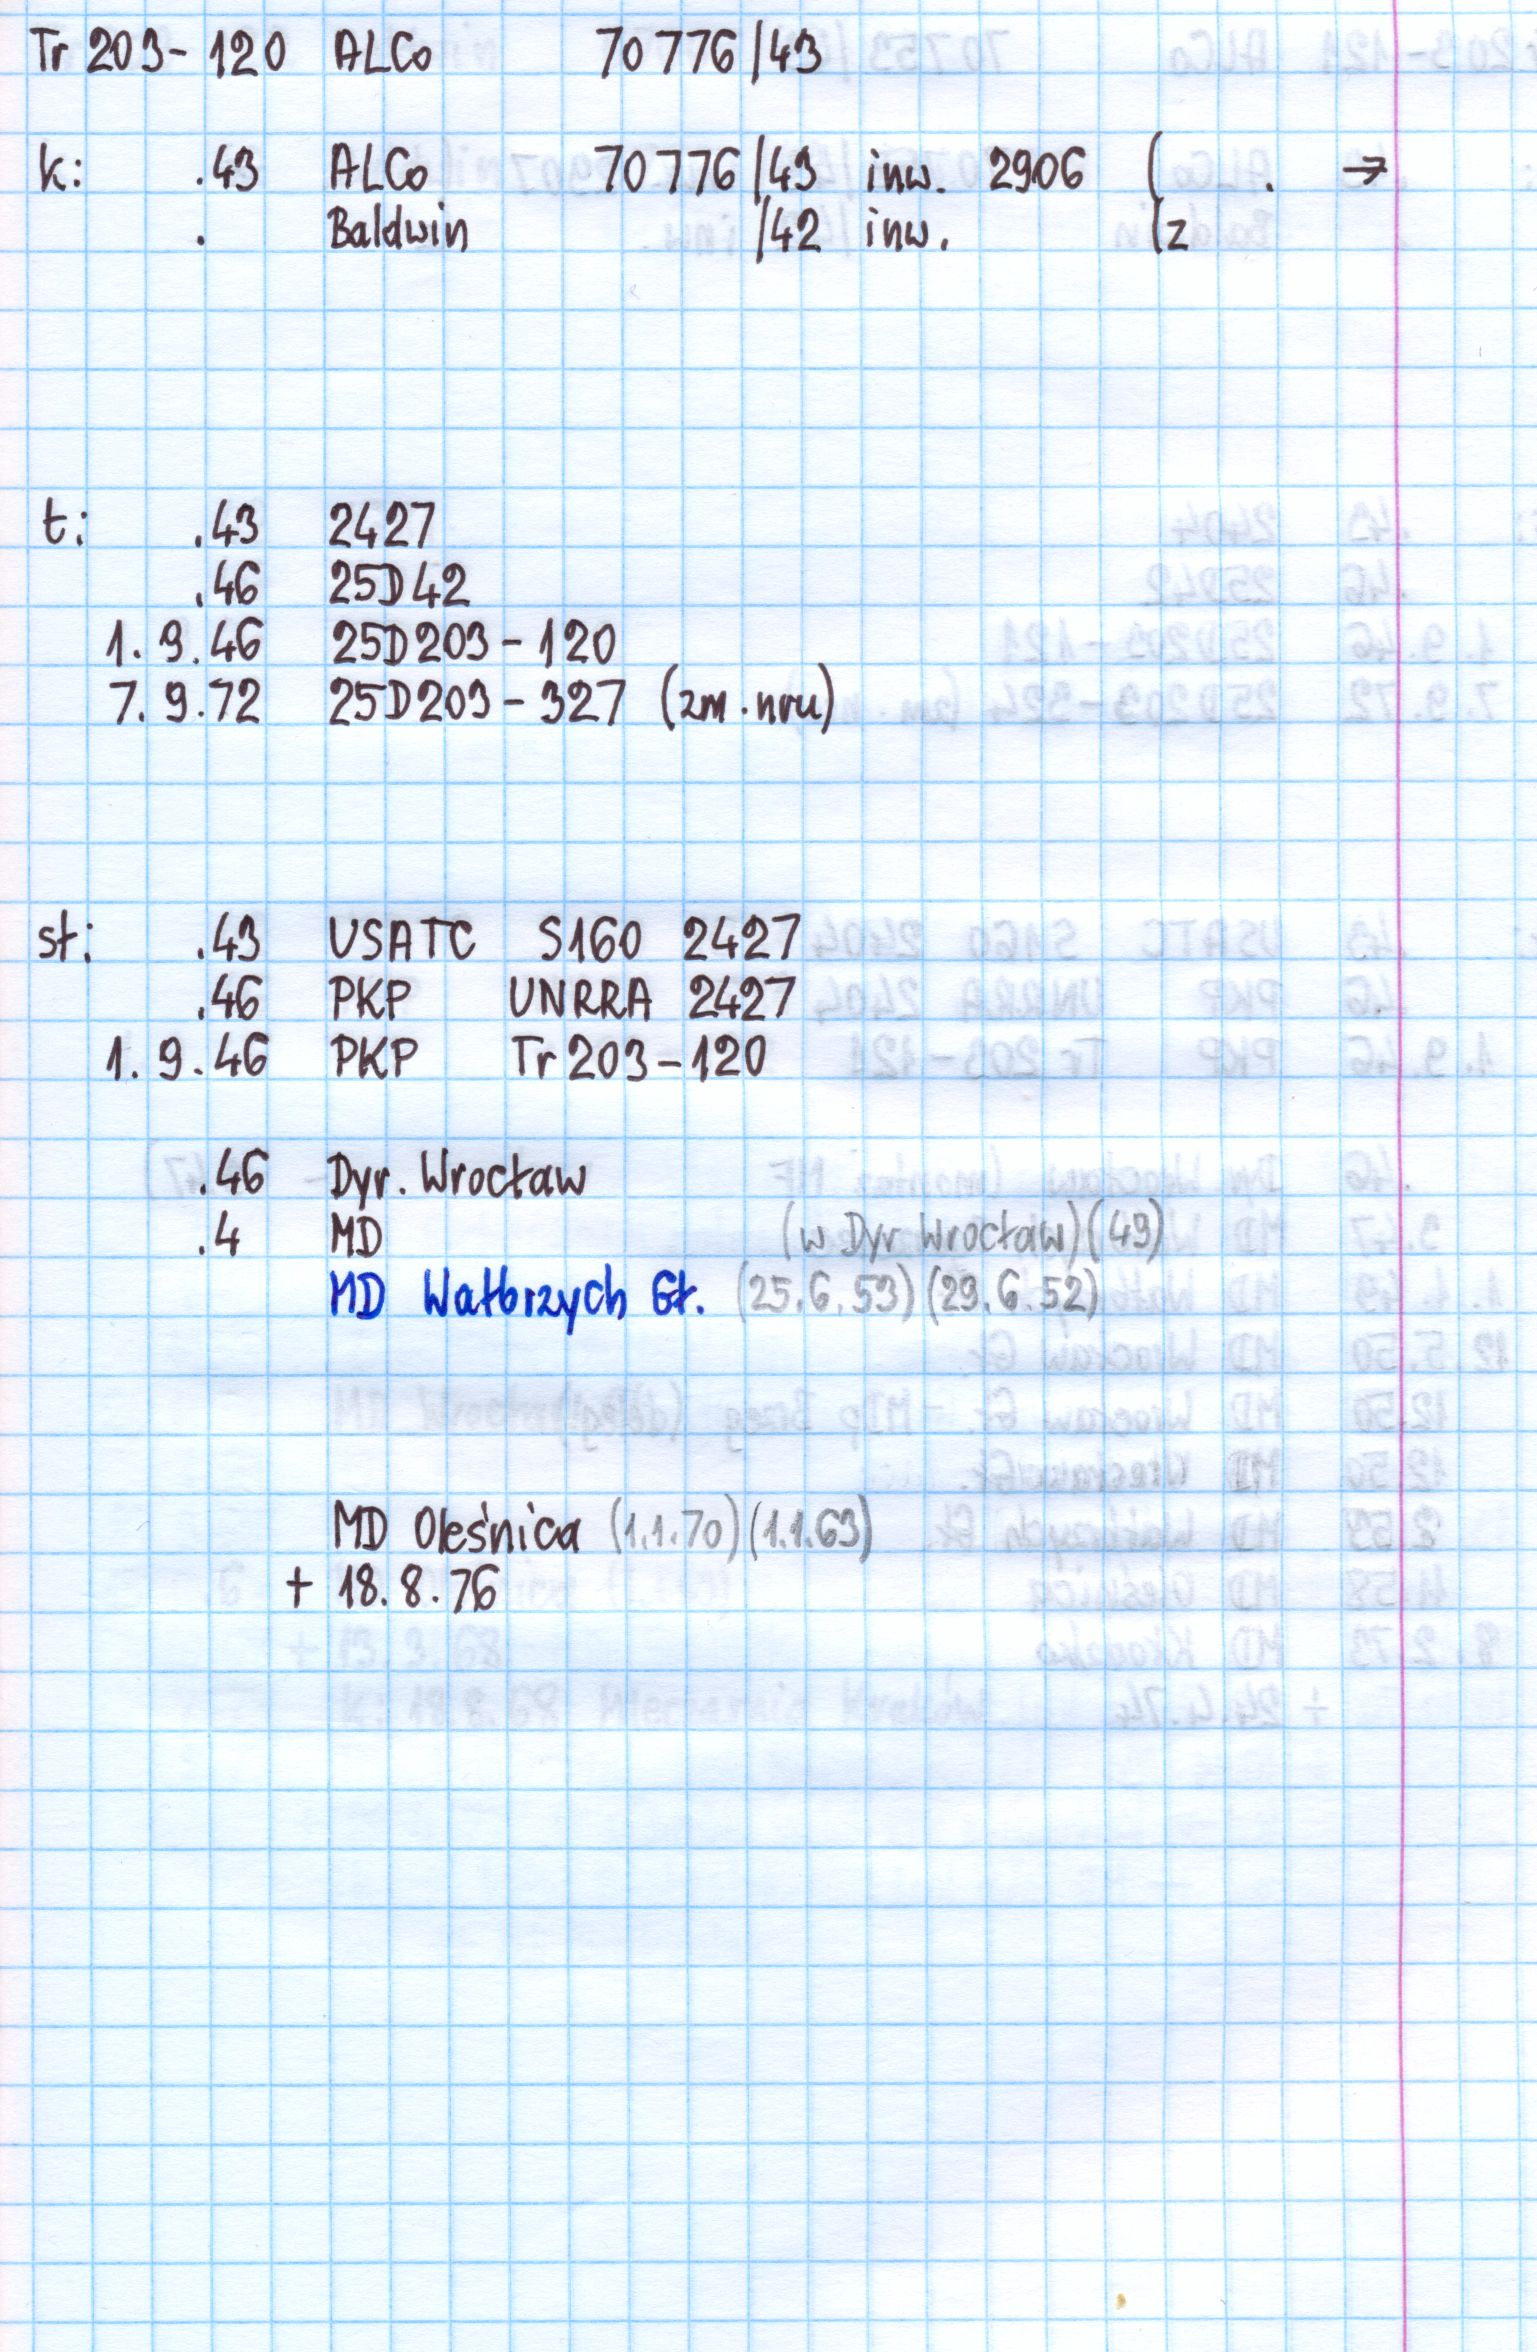 Tr 203-120 ALCo 70776/43
k: .43 ALCo 70776/43 inw. 2906 ( . →
. Baldwin /42 inw. (z
t: .43 2427
.46 25D42
1.9.46 25D203-120
7.9.72 25D203-327 (zm.nru)
st: .43 USATC S160 2427
.46 PKP UNRRA 2427
1.9.46 PKP Tr 203-120
.46 Dyr. Wrocław
.4 MD (w Dyr Wrocław)(49)
MD Wałbrzych Gł. (25.6.53)(29.6.52)
MD Oleśnica (1.1.70)(1.1.63)
+ 18.8.76